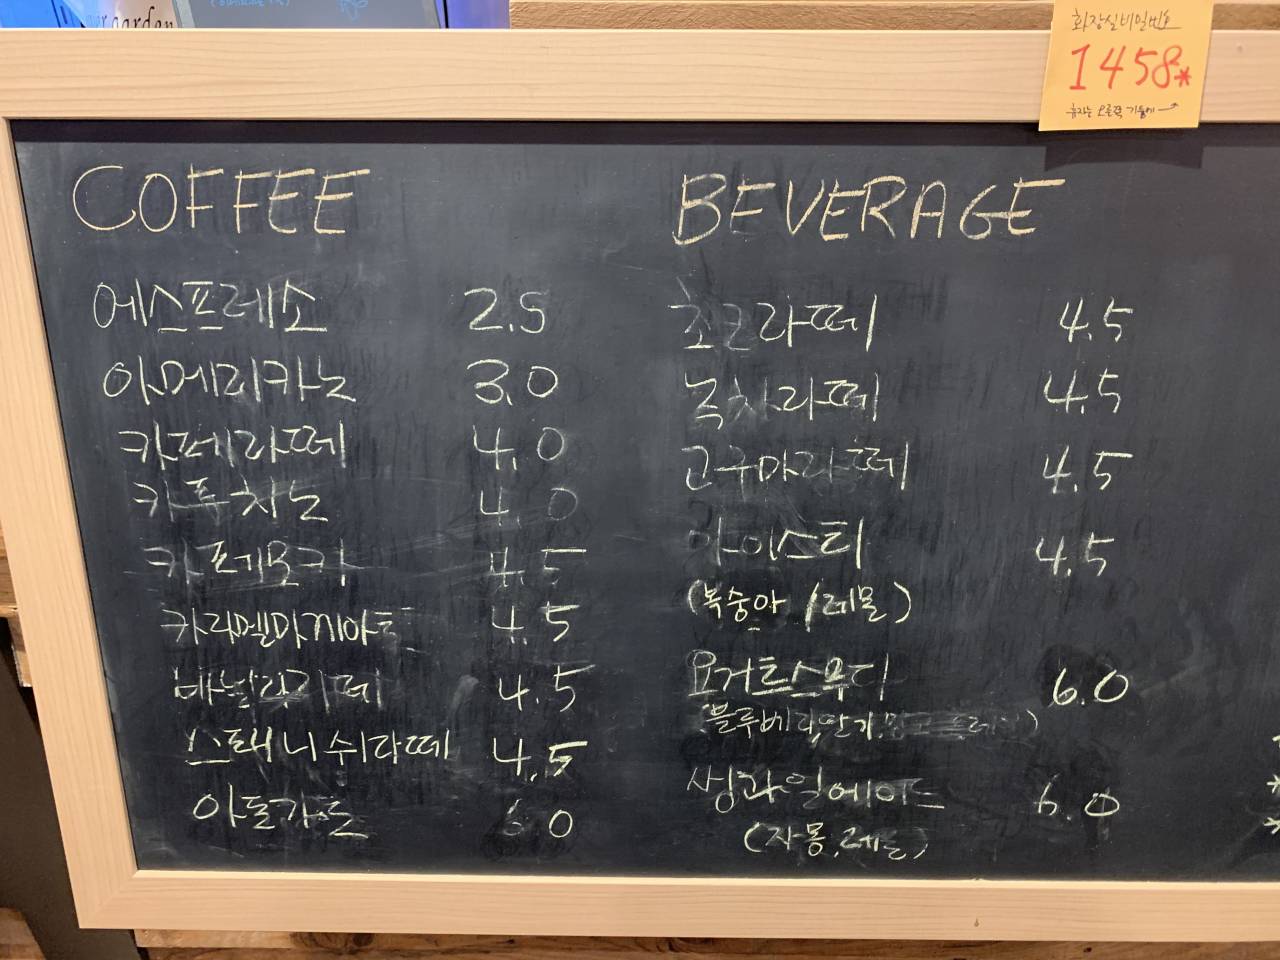 garden
화장실비밀번호
1458*
휴지는 오른쪽 기둥에 →
COFFEE
에스프레소 2.5
아메리카노 3.0
카페라떼 4.0
카푸치노 4.0
카페모카 4.5
카라멜마끼아또 4.5
바닐라라떼 4.5
스패니쉬라떼 4.5
아포가토 6.0
BEVERAGE
초코라떼 4.5
녹차라떼 4.5
고구마라떼 4.5
아이스티 4.5
(복숭아/레몬)
요거트스무디 6.0
(블루베리,딸기,망고,플레인)
생과일에이드 6.0
(자몽,레몬)